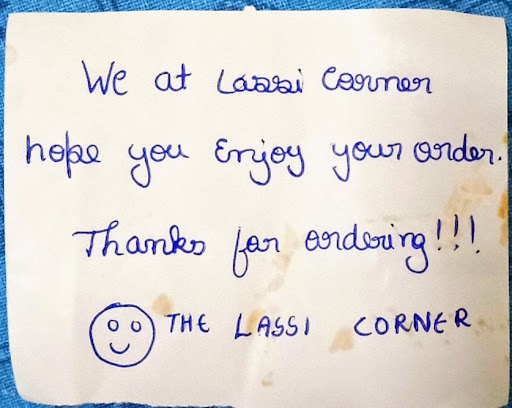 We at Lassi Corner
hope you Enjoy your order.
Thanks for ordering!!!
THE LASSI CORNER